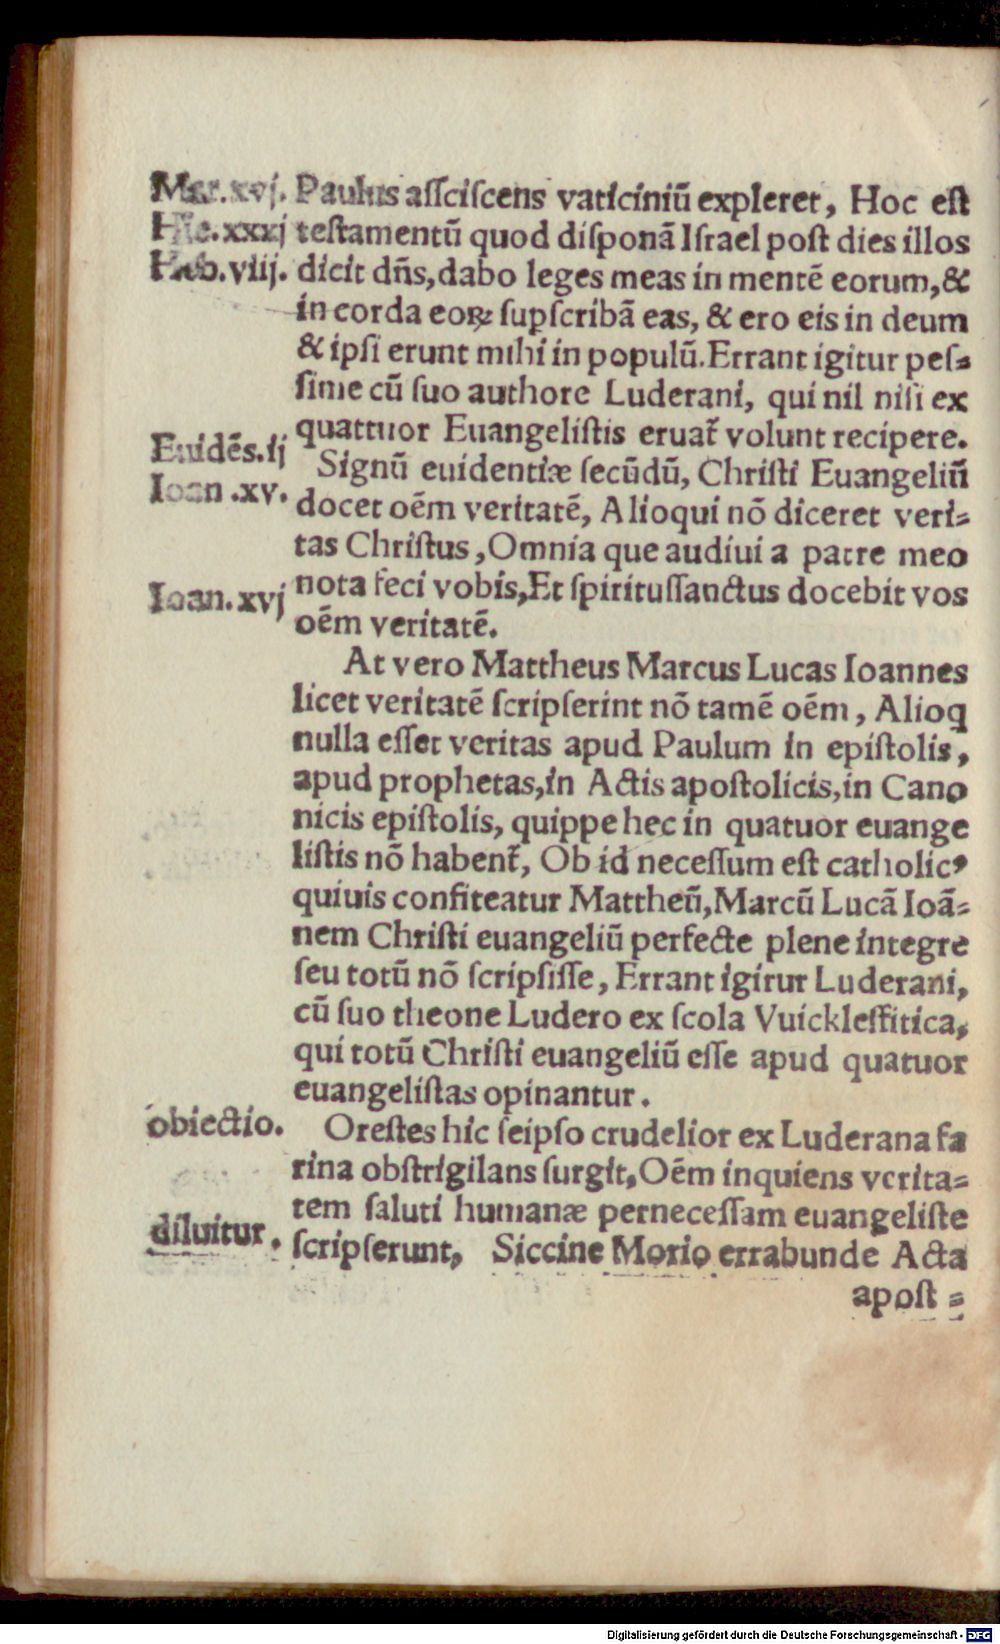 Mar.xvj. Paulus aſſciſcens vaticiniū expleret, Hoc eſt
Hie.xxxj teſtamentū quod diſponā Iſrael poſt dies illos
Heb.viij. dicit dn̄s, dabo leges meas in mentē eorum, &
in corda eoꝝ suꝑſcribā eas, & ero eis in deum
& ipſi erunt mihi in populū. Errant igitur peſ⸗
ſime cū ſuo authore Luderani, qui nil niſi ex
quattuor Euangeliſtis eruat᷑ volunt recipere.
Euidēs.ij Signū euidentiæ ſecūdū, Chriſti Euangeliū
Ioan.xv. docet oēm veritatē, Alioqui nō diceret veri⸗
tas Chriſtus, Omnia que audiui a patre meo
Ioan.xvj nota feci vobis, Et ſpirituſſanctus docebit vos
oēm veritatē.
At vero Mattheus Marcus Lucas Ioannes
licet veritatē ſcripſerint nō tamē oēm, Alioq
nulla eſſet veritas apud Paulum in epiſtolis,
apud prophetas, in Actis apoſtolicis, in Cano
nicis epiſtolis, quippe hec in quatuor euange
liſtis nō habent᷑, Ob id neceſſum eſt catholicꝰ
quiuis confiteatur Mattheū, Marcū Lucā Ioā⸗
nem Chriſti euangeliū perfecte plene integre
ſeu totū nō ſcripſiſſe, Errant igitur Luderani,
cū ſuo theone Ludero ex ſcola Vuickleffitica,
qui totū Chriſti euangeliū eſſe apud quatuor
euangeliſtas opinantur.
obiectio. Oreſtes hic ſeipſo crudelior ex Luderana fa
rina obſtrigilans ſurgit, Oēm inquiens verita⸗
tem ſaluti humanæ perneceſſam euangeliſte
diluitur. ſcripſerunt, Siccine Morio errabunde Acta
apoſt⸗
Digitalisierung gefördert durch die Deutsche Forschungsgemeinschaft - DFG